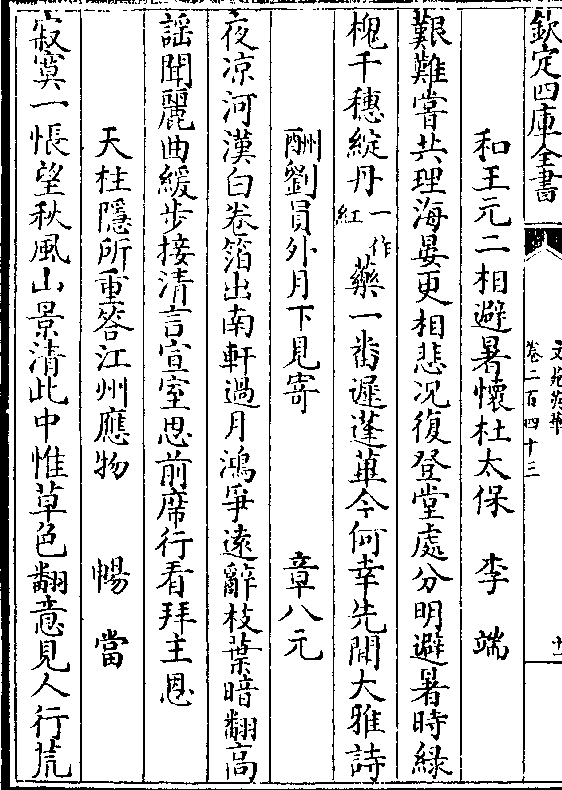 欽定四庫全書
文苑英華
卷二百四十三
十二
和王元二相避暑懷杜太保 李端
艱難嘗共理海晏更相悲况復登堂處分明避暑時緑
槐千穗綻丹一作紅藥一畨遲蓬蓽今何幸先聞大雅詩
酬劉員外月下見寄 章八元
夜凉河漢白卷箔出南軒過月鴻爭遠辭枝葉暗翻髙
謡聞麗曲緩步接清言宣室思前席行看拜主恩
天柱隱所重答江州應物 暢當
寂寞一悵望秋風山景清此中惟草色翻意見人行荒